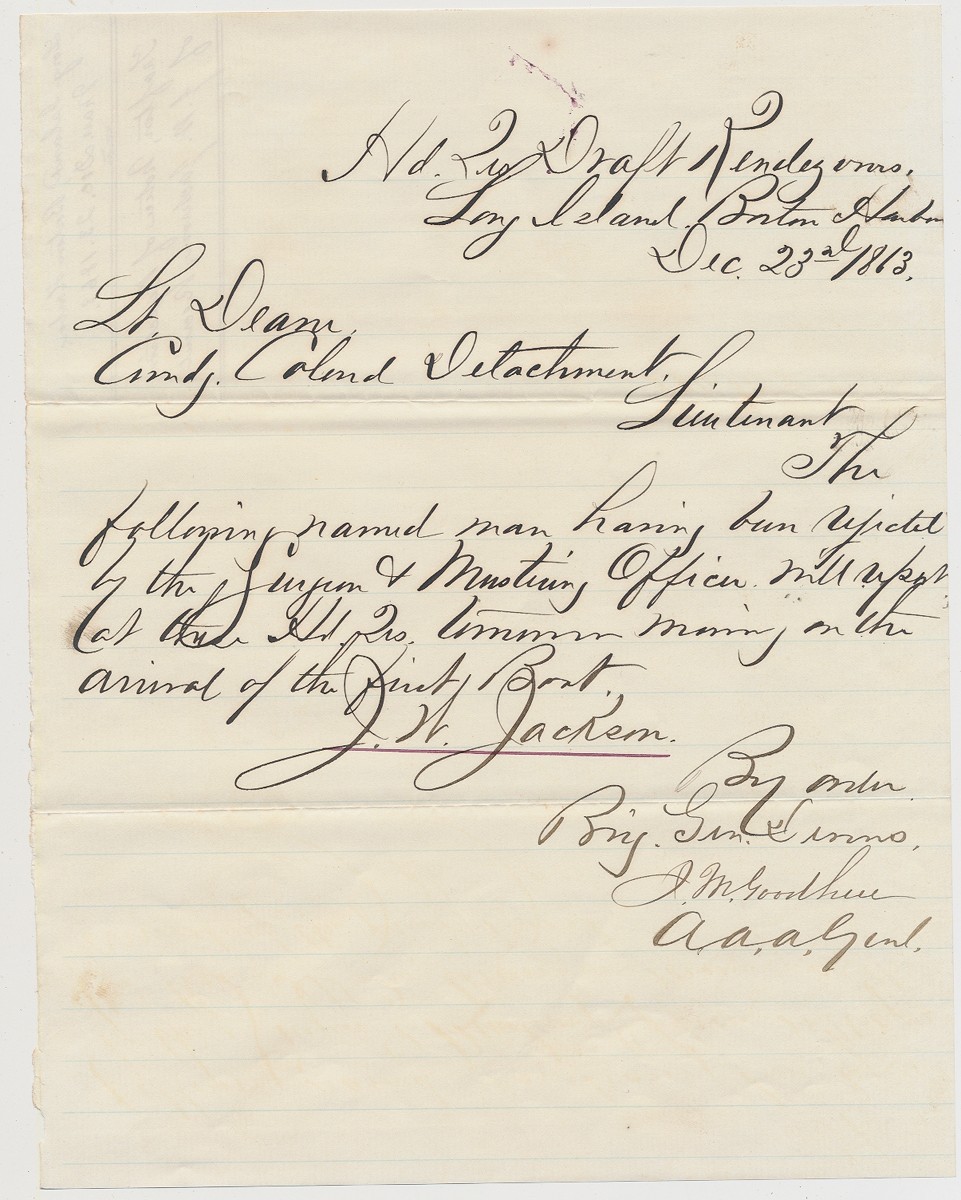 Hd. Qrs Draft Rendezvous.
Long Island. Boston Harbor
Dec. 23rd 1863.
Lt. Deane.
Comdg. Colored Detachment.
Lieutenant
The
following named man having been rejected
by the Surgeon & Mustering Officer. will report
at these Hd. Qrs. tomorrow morning on the
arrival of the first Boat.
J. W. Jackson.
By order
Brig. Gen. Devens,
J. M. Goodhue
A. A. A. Genl.